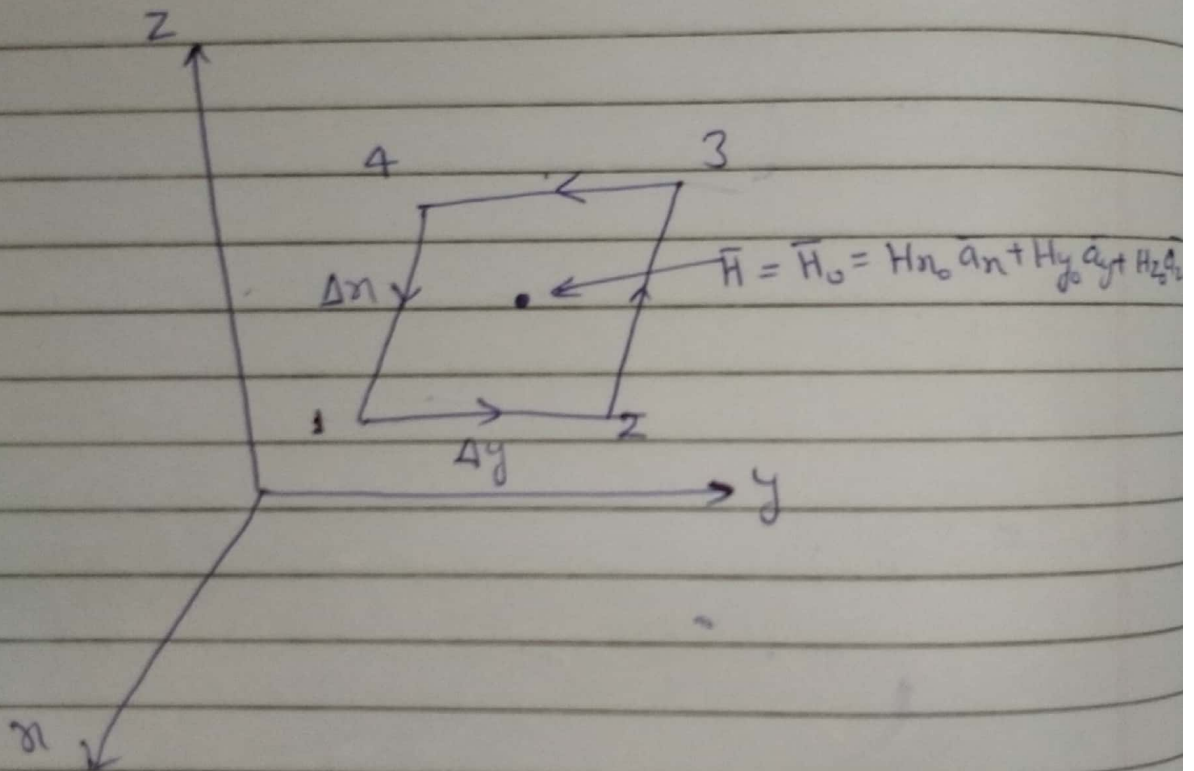 Z
4
3
Δx
H̄ = H̄₀ = Hx₀ āx + Hy₀ āy + Hz₀ āz
1
2
Δy
y
x